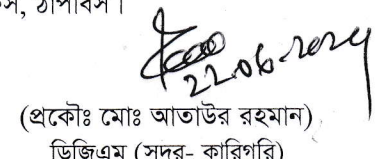 22.06.2024
(প্রকৌঃ মোঃ আতাউর রহমান)
ডিজিএম (সদর- কারিগরি)